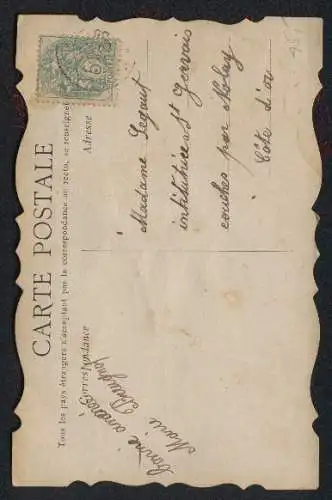 CARTE POSTALE
Tous les pays étrangers n'acceptant pas la correspondance au recto, se renseigner
Correspondance
Adresse
Bonne année
Marie
Madame Legaut
institutrice à St Gervais
couches par Nolay
Côte d'or